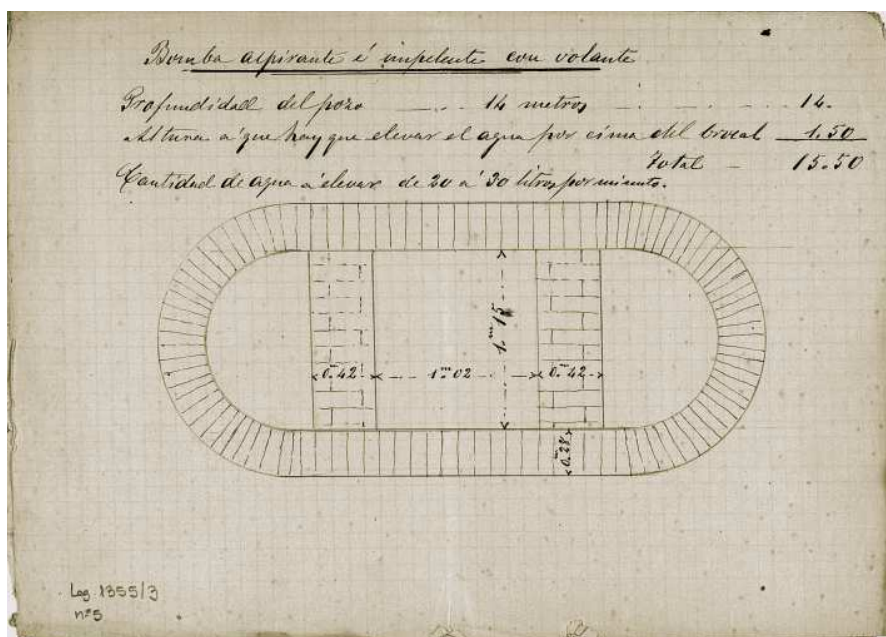 Bomba aspirante é impelente con volante
Profundidad del pozo — . . 14 metros — . — . — . 14.
Altura a que hay que elevar el agua por cima del brocal 1.50
Total — 15.50
Cantidad de agua a elevar de 20 a 30 litros por minuto.
1.m15
0.m42
1m02
0.m42
0.m28
Leg 1355/3
nº5